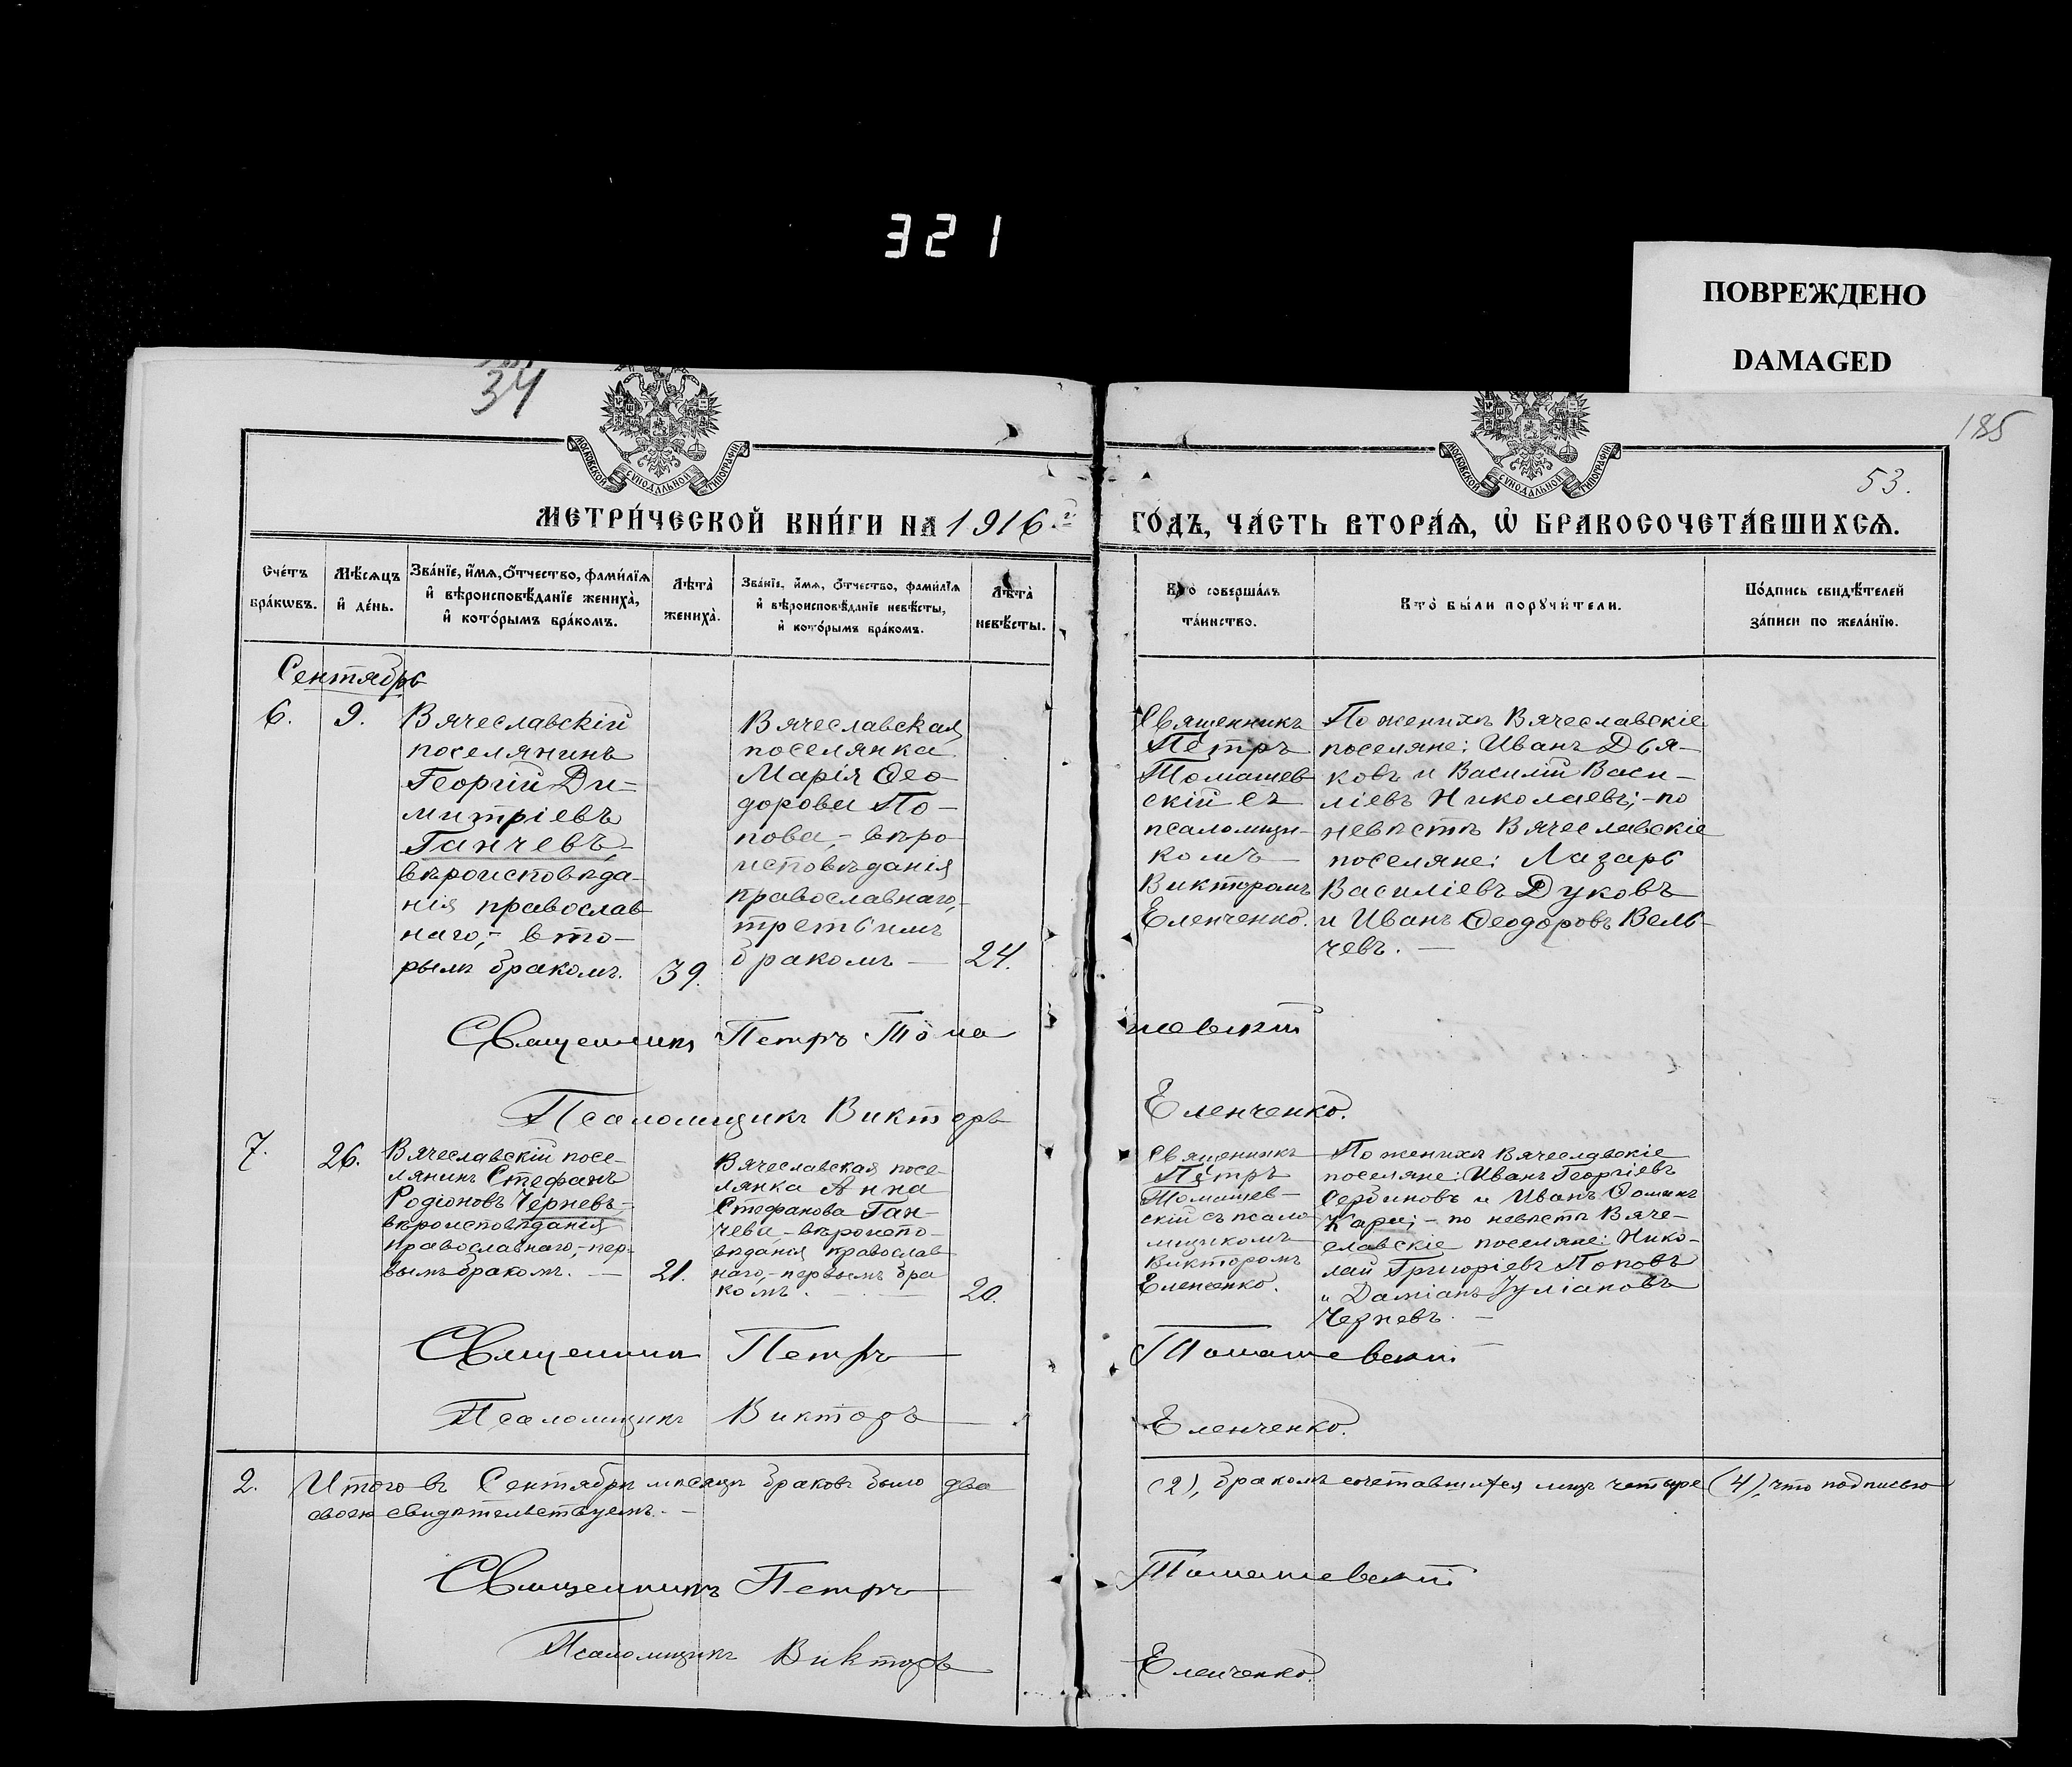 321
ПОВРЕЖДЕНО
DAMAGED
34
185
53.
МОСКОВСКОЙ СѴНОДАЛЬНОЙ ТИПОГРАФІИ
МОСКОВСКОЙ СѴНОДАЛЬНОЙ ТИПОГРАФІИ
МЕТРИ́ЧЕСКОЙ КНИ́ГИ НА 1916 г. ГО́ДЪ, ЧА́СТЬ ВТОРА́Ѧ, Ѡ҆ БРАКОСОЧЕТА́ВШИХСѦ.
Сче́тъ
бра́кѡвъ.
Мѣ́сѧцъ
и҆ де́нь.
Зва́нїе, и҆́мѧ, ѻ҆́тчество, фами́лїѧ
и҆ вѣроисповѣ́данїе жениха̀,
и҆ кото́рымъ бра́комъ.
Лѣта̀
жениха̀.
Зва́нїе, и҆́мѧ, ѻ҆́тчество, фами́лїѧ
и҆ вѣроисповѣ́данїе невѣ́сты,
и҆ кото́рымъ бра́комъ.
Лѣта̀
невѣ́сты.
Кто̀ соверша́лъ
та́инство.
Кто̀ бы́ли порꙋчи́тели.
По́дпись свидѣ́телей
за́писи по жела́нїю.
Сентябрь
6.
9.
Вячеславскій
поселянинъ
Георгій Ди-
митріевъ
Ганчевъ,-
вѣроисповѣда-
нія православ-
наго,- вто-
рымъ бракомъ.
39.
Вячеславская
поселянка
Марія Ѳео-
дорова По-
пова,- вѣро-
исповѣданія
православнаго,-
третьимъ
бракомъ
24.
Священникъ
Петръ
Томашев-
скій съ
псаломщи-
комъ
Викторомъ
Еленченко.
По женихѣ Вячеславскіе
поселяне: Иванъ Дья-
ковъ и Василій Васи-
ліевъ Николаевъ;- по
невѣстѣ Вячеславскіе
поселяне: Лазарь
Василіевъ Дуковъ
и Иванъ Ѳеодоровъ Вель-
чевъ.
Священникъ Петръ Томашевскій
Псаломщикъ Викторъ Еленченко.
7.
26.
Вячеславскій посе-
лянинъ Стефанъ
Родіоновъ Черневъ,-
вѣроисповѣданія
православнаго,- пер-
вымъ бракомъ.
21.
Вячеславская посе-
лянка Анна
Стефанова Ган-
чева,- вѣроиспо-
вѣданія православ-
наго,- первымъ бра-
комъ.
20.
Священникъ
Петръ
Томашев-
скій съ псало-
мщикомъ
Викторомъ
Еленченко.
По женихѣ Вячеславскіе
поселяне: Иванъ Георгіевъ
Сербиновъ и Иванъ Ѳоминъ
Кара;- по невѣстѣ Вяче-
славскіе поселяне: Нико-
лай Григоріевъ Поповъ
и Даміанъ Іуліановъ
Черневъ.
Священникъ Петръ Томашевскій
Псаломщикъ Викторъ Еленченко.
2. Итого въ Сентябрѣ мѣсяцѣ браковъ было два (2), бракомъ сочетавшихся лицъ четыре (4), что подписью
своею свидѣтельствуемъ.
Священникъ Петръ Томашевскій
Псаломщикъ Викторъ Еленченко.